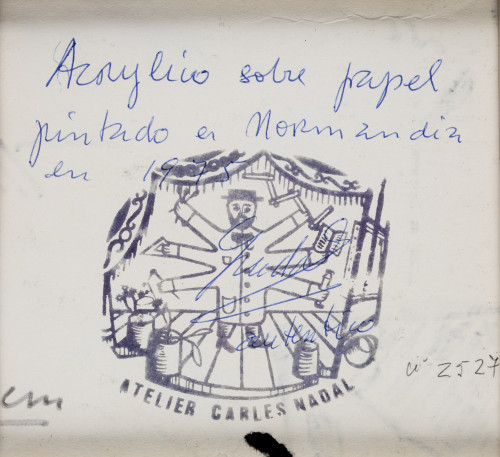 Acrylico sobre papel
pintado en Normandia
en 1975
autentico
ATELIER CARLES NADAL
nº 2527
em